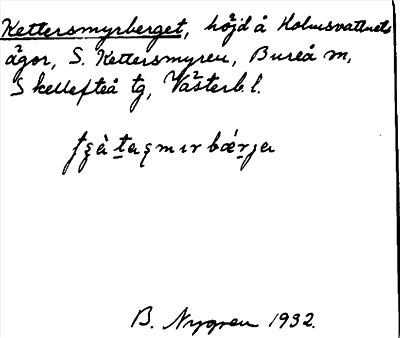 Kettersmyrberget, höjd å Holmsvattnets
ägor, S. Kettersmyren, Bureå sn,
Skellefteå tg, Västerb. l.
B. Nygren 1932.